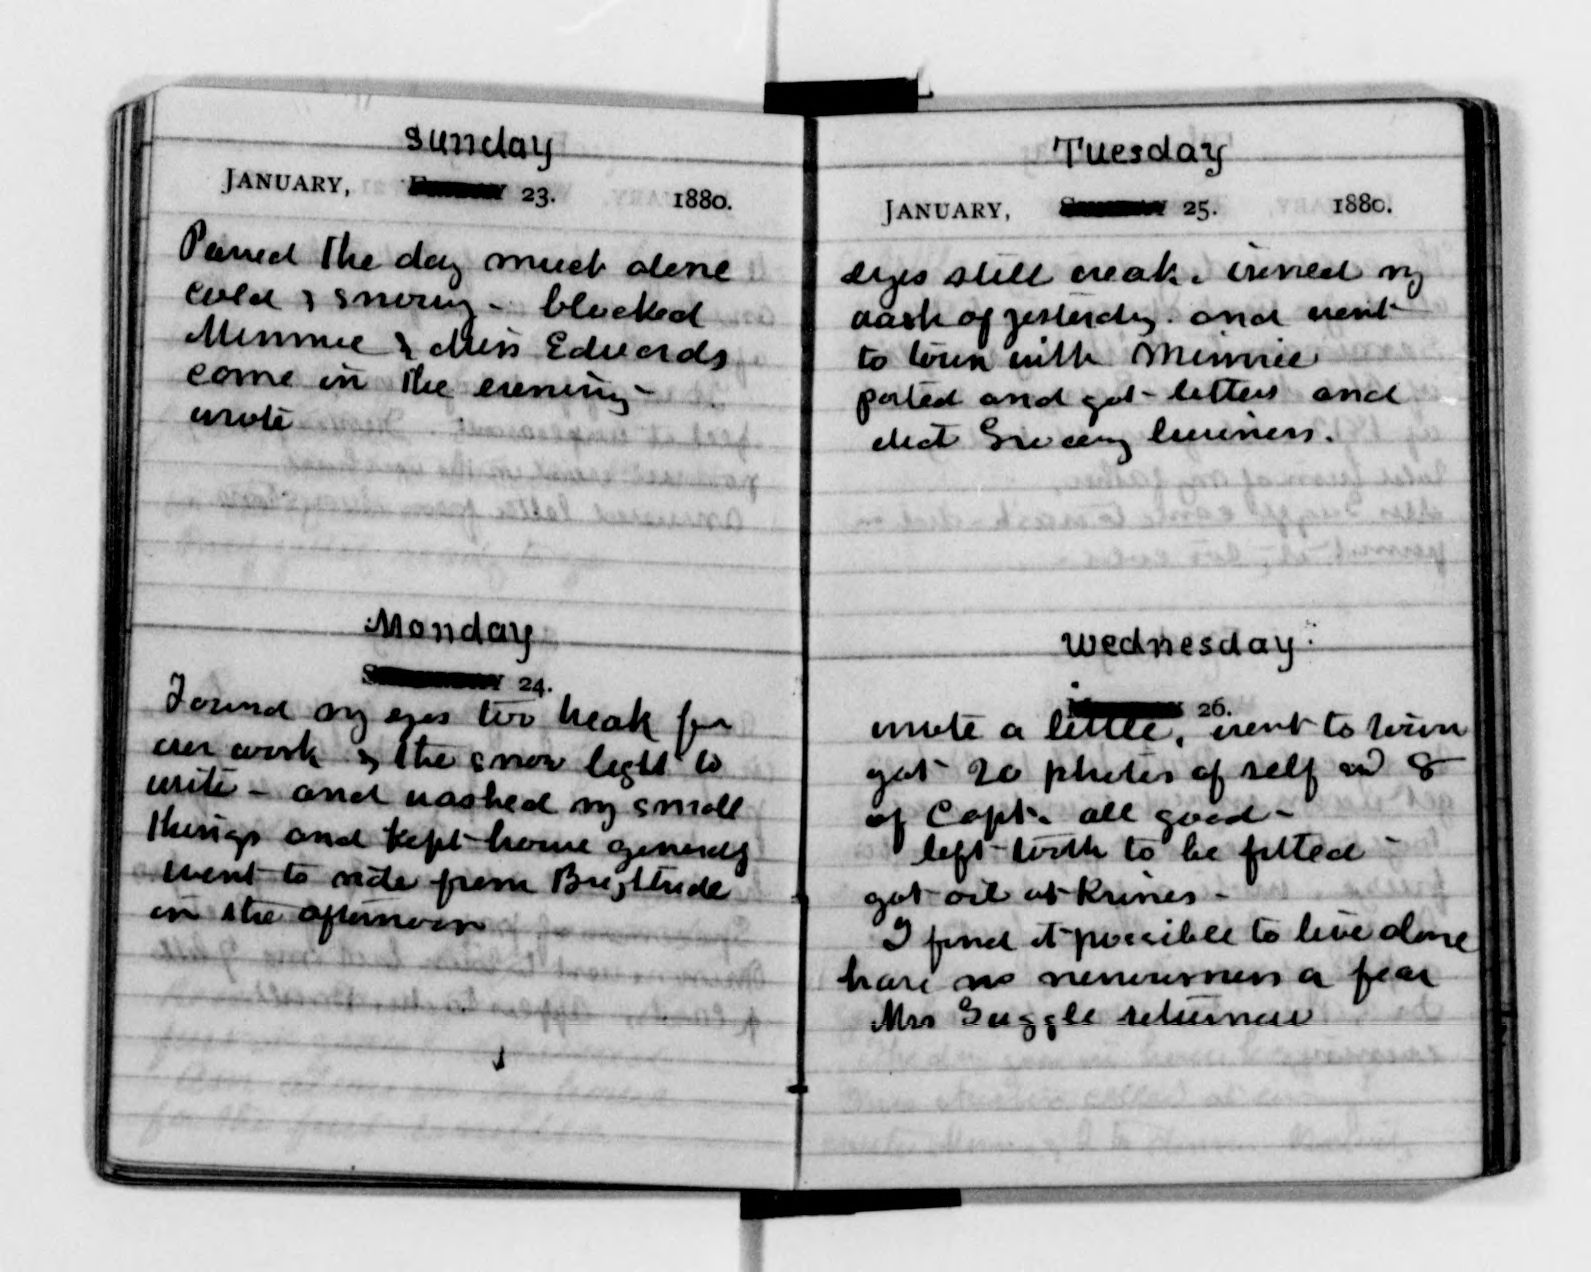 Sunday
JANUARY, 23. 1880.
Passed the day much alone
cold & snowy - blocked
Minnie & Miss Edwards
came in the evening -
wrote
Monday
24.
Found my eyes too weak for
work & the snow light to
write - and washed my small
things and kept home generaly
Went to ride from
in the afternoon
Tuesday
JANUARY, 25. 1880.
eyes still weak. ironed my
wash of yesterday. and went
to town with Minnie
posted and got letters and
did Grocery business.
Wednesday
26.
wrote a little, went to town
got 20 photos of self and 8
of Capt. all good -
left teeth to be filled -
got oil at Krines -
I find it possible to live alone
have no nervousness or fear
Mrs Guggle returned